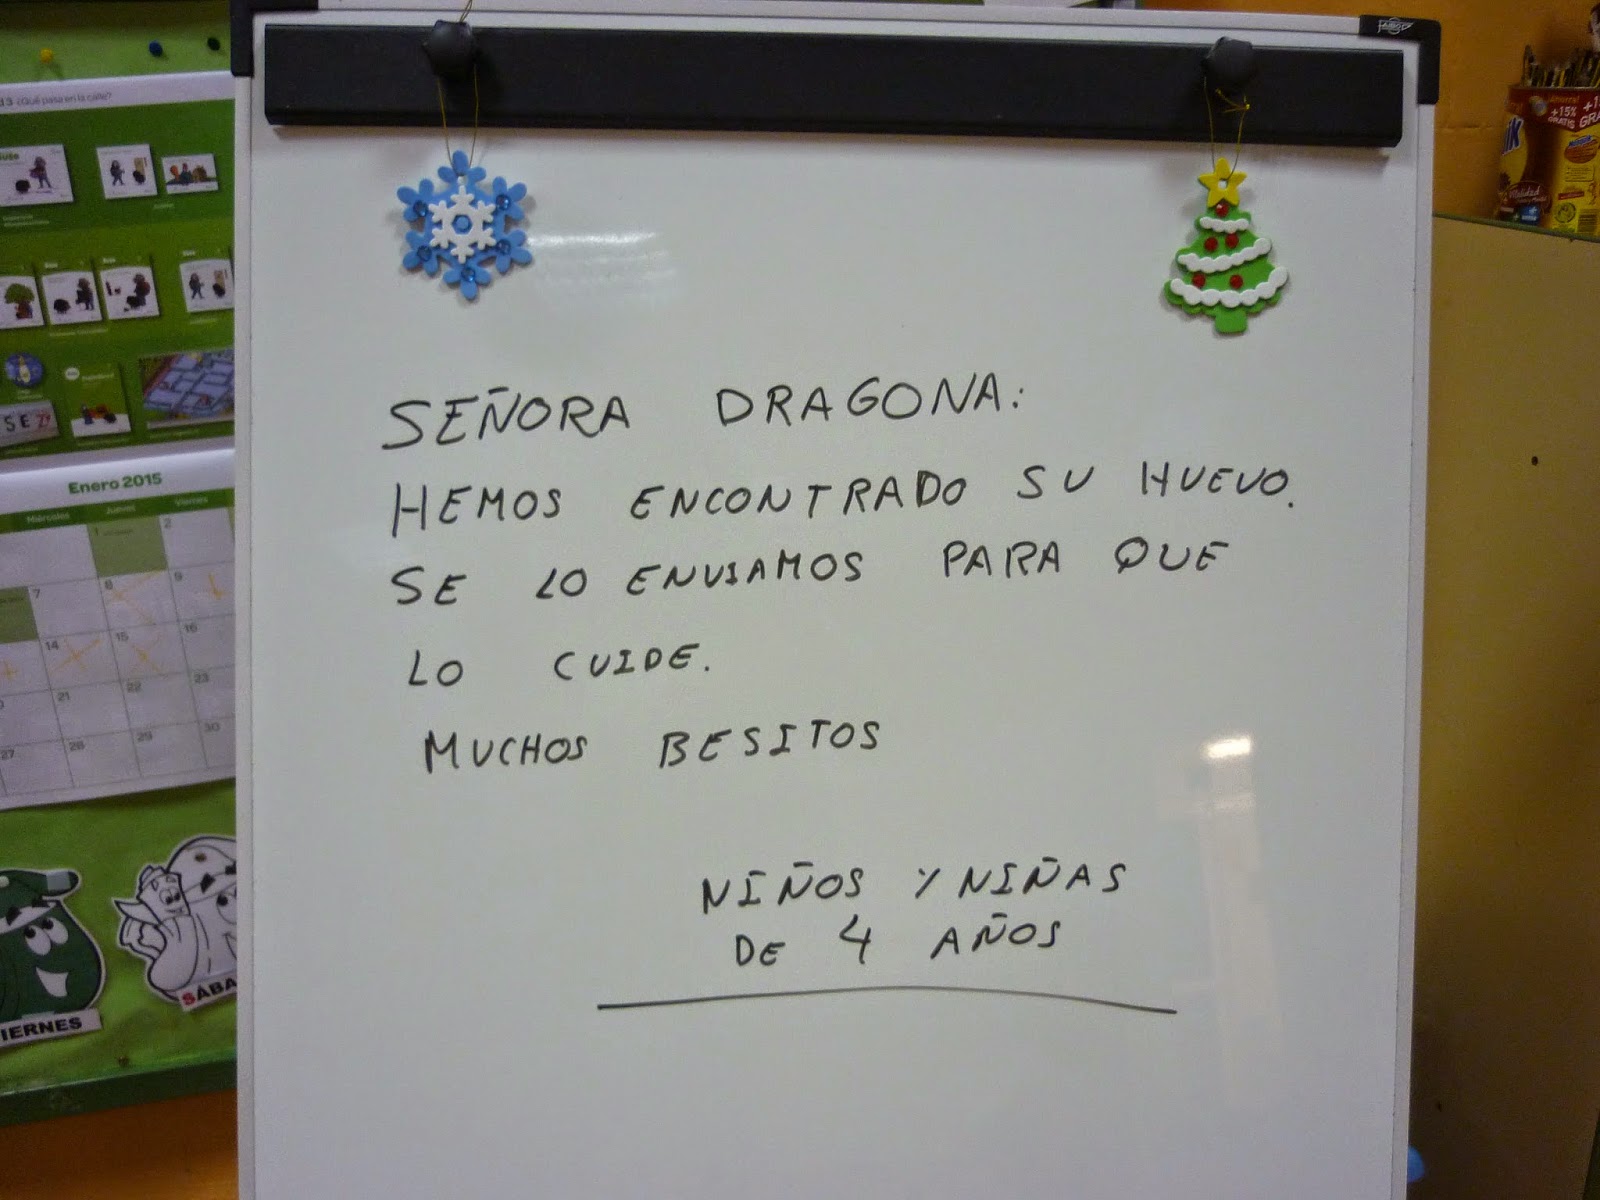 SEÑORA DRAGONA:
HEMOS ENCONTRADO SU HUEVO.
SE LO ENVIAMOS PARA QUE
LO CUIDE.
MUCHOS BESITOS
NIÑOS Y NIÑAS
DE 4 AÑOS
3 ¿Qué pasa en la calle?
Enero 2015
Miércoles Jueves Viernes
1 2
7 8 9
14 15 16
21 22 23
27 28 29 30
IERNES
SÁBA
¡Ahorra!
+15%
GRATIS